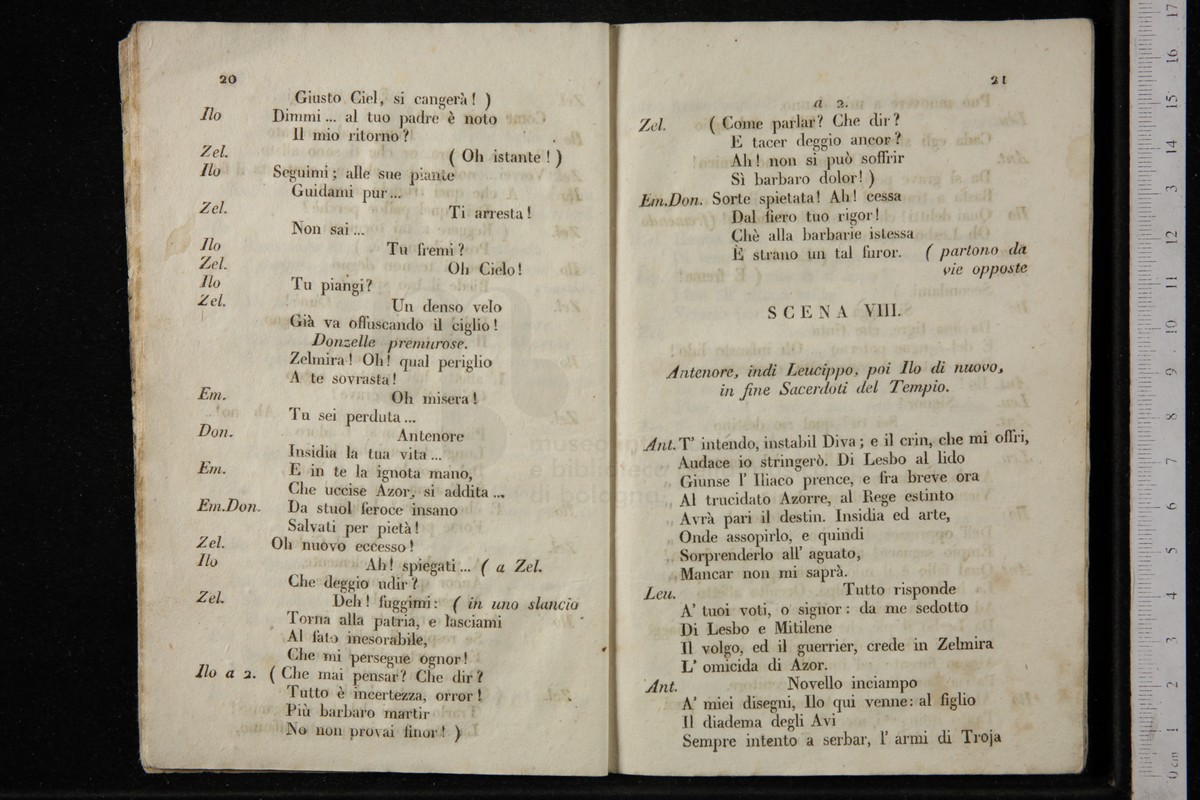 20
Giusto Ciel, si cangerà! )
Ilo Dimmi ... al tuo padre è noto
Il mio ritorno?
Zel. ( Oh istante! )
Ilo Seguimi; alle sue piante
Guidami pur ...
Zel. Ti arresta!
Non sai ...
Ilo Tu fremi?
Zel. Oh Cielo!
Ilo Tu piangi?
Zel. Un denso velo
Già va offuscando il ciglio!
Donzelle premurose.
Zelmira! Oh! qual periglio
A te sovrasta!
Em. Oh misera!
Tu sei perduta ...
Don. Antenore
Insidia la tua vita ...
Em. E in te la ignota mano,
Che uccise Azor, si addita ...
Em.Don. Da stuol feroce insano
Salvati per pietà!
Zel. Oh nuovo eccesso!
Ilo Ah! spiegati ... ( a Zel.
Che deggio udir?
Zel. Deh! fuggimi: ( in uno slancio
Torna alla patria, e lasciami
Al fato inesorabile,
Che mi persegue ognor!
Ilo a 2. ( Che mai pensar? Che dir?
Tutto è incertezza, orror!
Più barbaro martir
No non provai finor! )
21
a 2.
Zel. ( Come parlar? Che dir?
E tacer deggio ancor?
Ah! non si può soffrir
Sì barbaro dolor! )
Em.Don. Sorte spietata! Ah! cessa
Dal fiero tuo rigor!
Chè alla barbarie istessa
È strano un tal furor. ( partono da
vie opposte
SCENA VIII.
Antenore, indi Leucippo, poi Ilo di nuovo,
in fine Sacerdoti del Tempio.
Ant. T' intendo, instabil Diva; e il crin, che mi offri,
Audace io stringerò. Di Lesbo al lido
„ Giunse l' Iliaco prence, e fra breve ora
„ Al trucidato Azorre, al Rege estinto
„ Avrà pari il destin. Insidia ed arte,
„ Onde assopirlo, e quindi
„ Sorprenderlo all' aguato,
„ Mancar non mi saprà.
Leu. Tutto risponde
A' tuoi voti, o signor: da me sedotto
Di Lesbo e Mitilene
Il volgo, ed il guerrier, crede in Zelmira
L' omicida di Azor.
Ant. Novello inciampo
A' miei disegni, Ilo qui venne: al figlio
Il diadema degli Avi
Sempre intento a serbar, l' armi di Troja